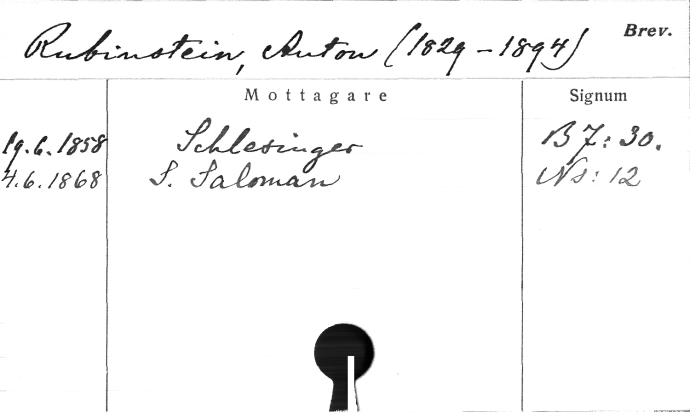 Rubinstein, Anton (1829-1894) Brev.
Mottagare Signum
19.6.1858 Schlesinger B7:30.
4.6.1868 S. Saloman Ns:12